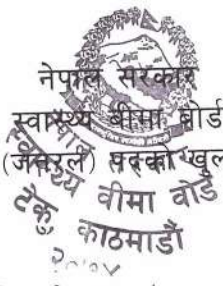 नेपाल सरकार
स्वास्थ्य बीमा बोर्ड
(जनरल) पदको खुल
स्वास्थ्य बीमा बोर्ड
टेकु, काठमाडौं